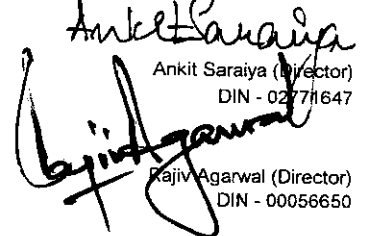 Ankit Saraiya
Ankit Saraiya (Director)
DIN - 02771647
Rajiv Agarwal
Rajiv Agarwal (Director)
DIN - 00056650